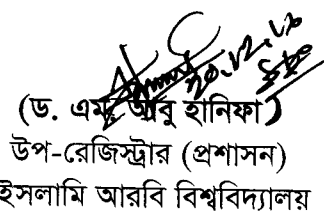 ২০.১২.১৮
(ড. এম. আবু হানিফা)
উপ-রেজিস্ট্রার (প্রশাসন)
ইসলামি আরবি বিশ্ববিদ্যালয়